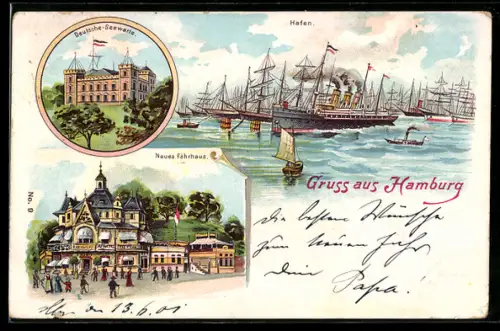 Deutsche-Seewarte.
Hafen.
Neues Fährhaus.
No. 9
Gruss aus Hamburg
Die besten Wünsche
zum neuen Jahr
Dein Papa!
den 13.6.01